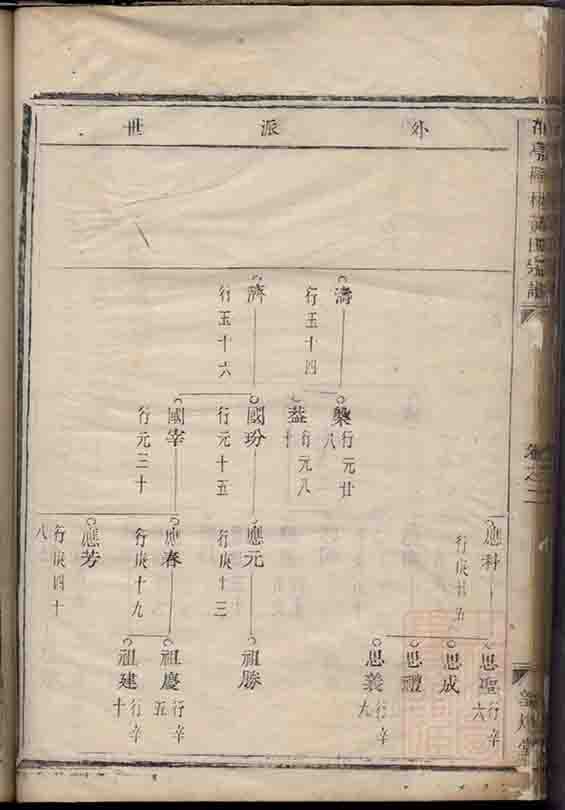 外派世
濤
行玉十四
濟
行玉十六
槃
行元廿八
益
行元八十
國玢
行元十五
國宰
行元三十
應科
行庚廿五
應元
行庚十三
應春
行庚十九
應芳
行庚四十八
思聖
行辛六
思成
思禮
思義
行辛九
祖勝
祖慶
行辛五
祖建
行辛十
卷之二